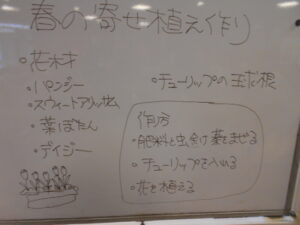 春の寄せ植え作り
・花材
・パンジー
・スウィートアリッサム
・葉ぼたん
・デイジー
・チューリップの球根
作り方
・肥料と虫除け薬をまぜる
・チューリップを入れる
・花を植える